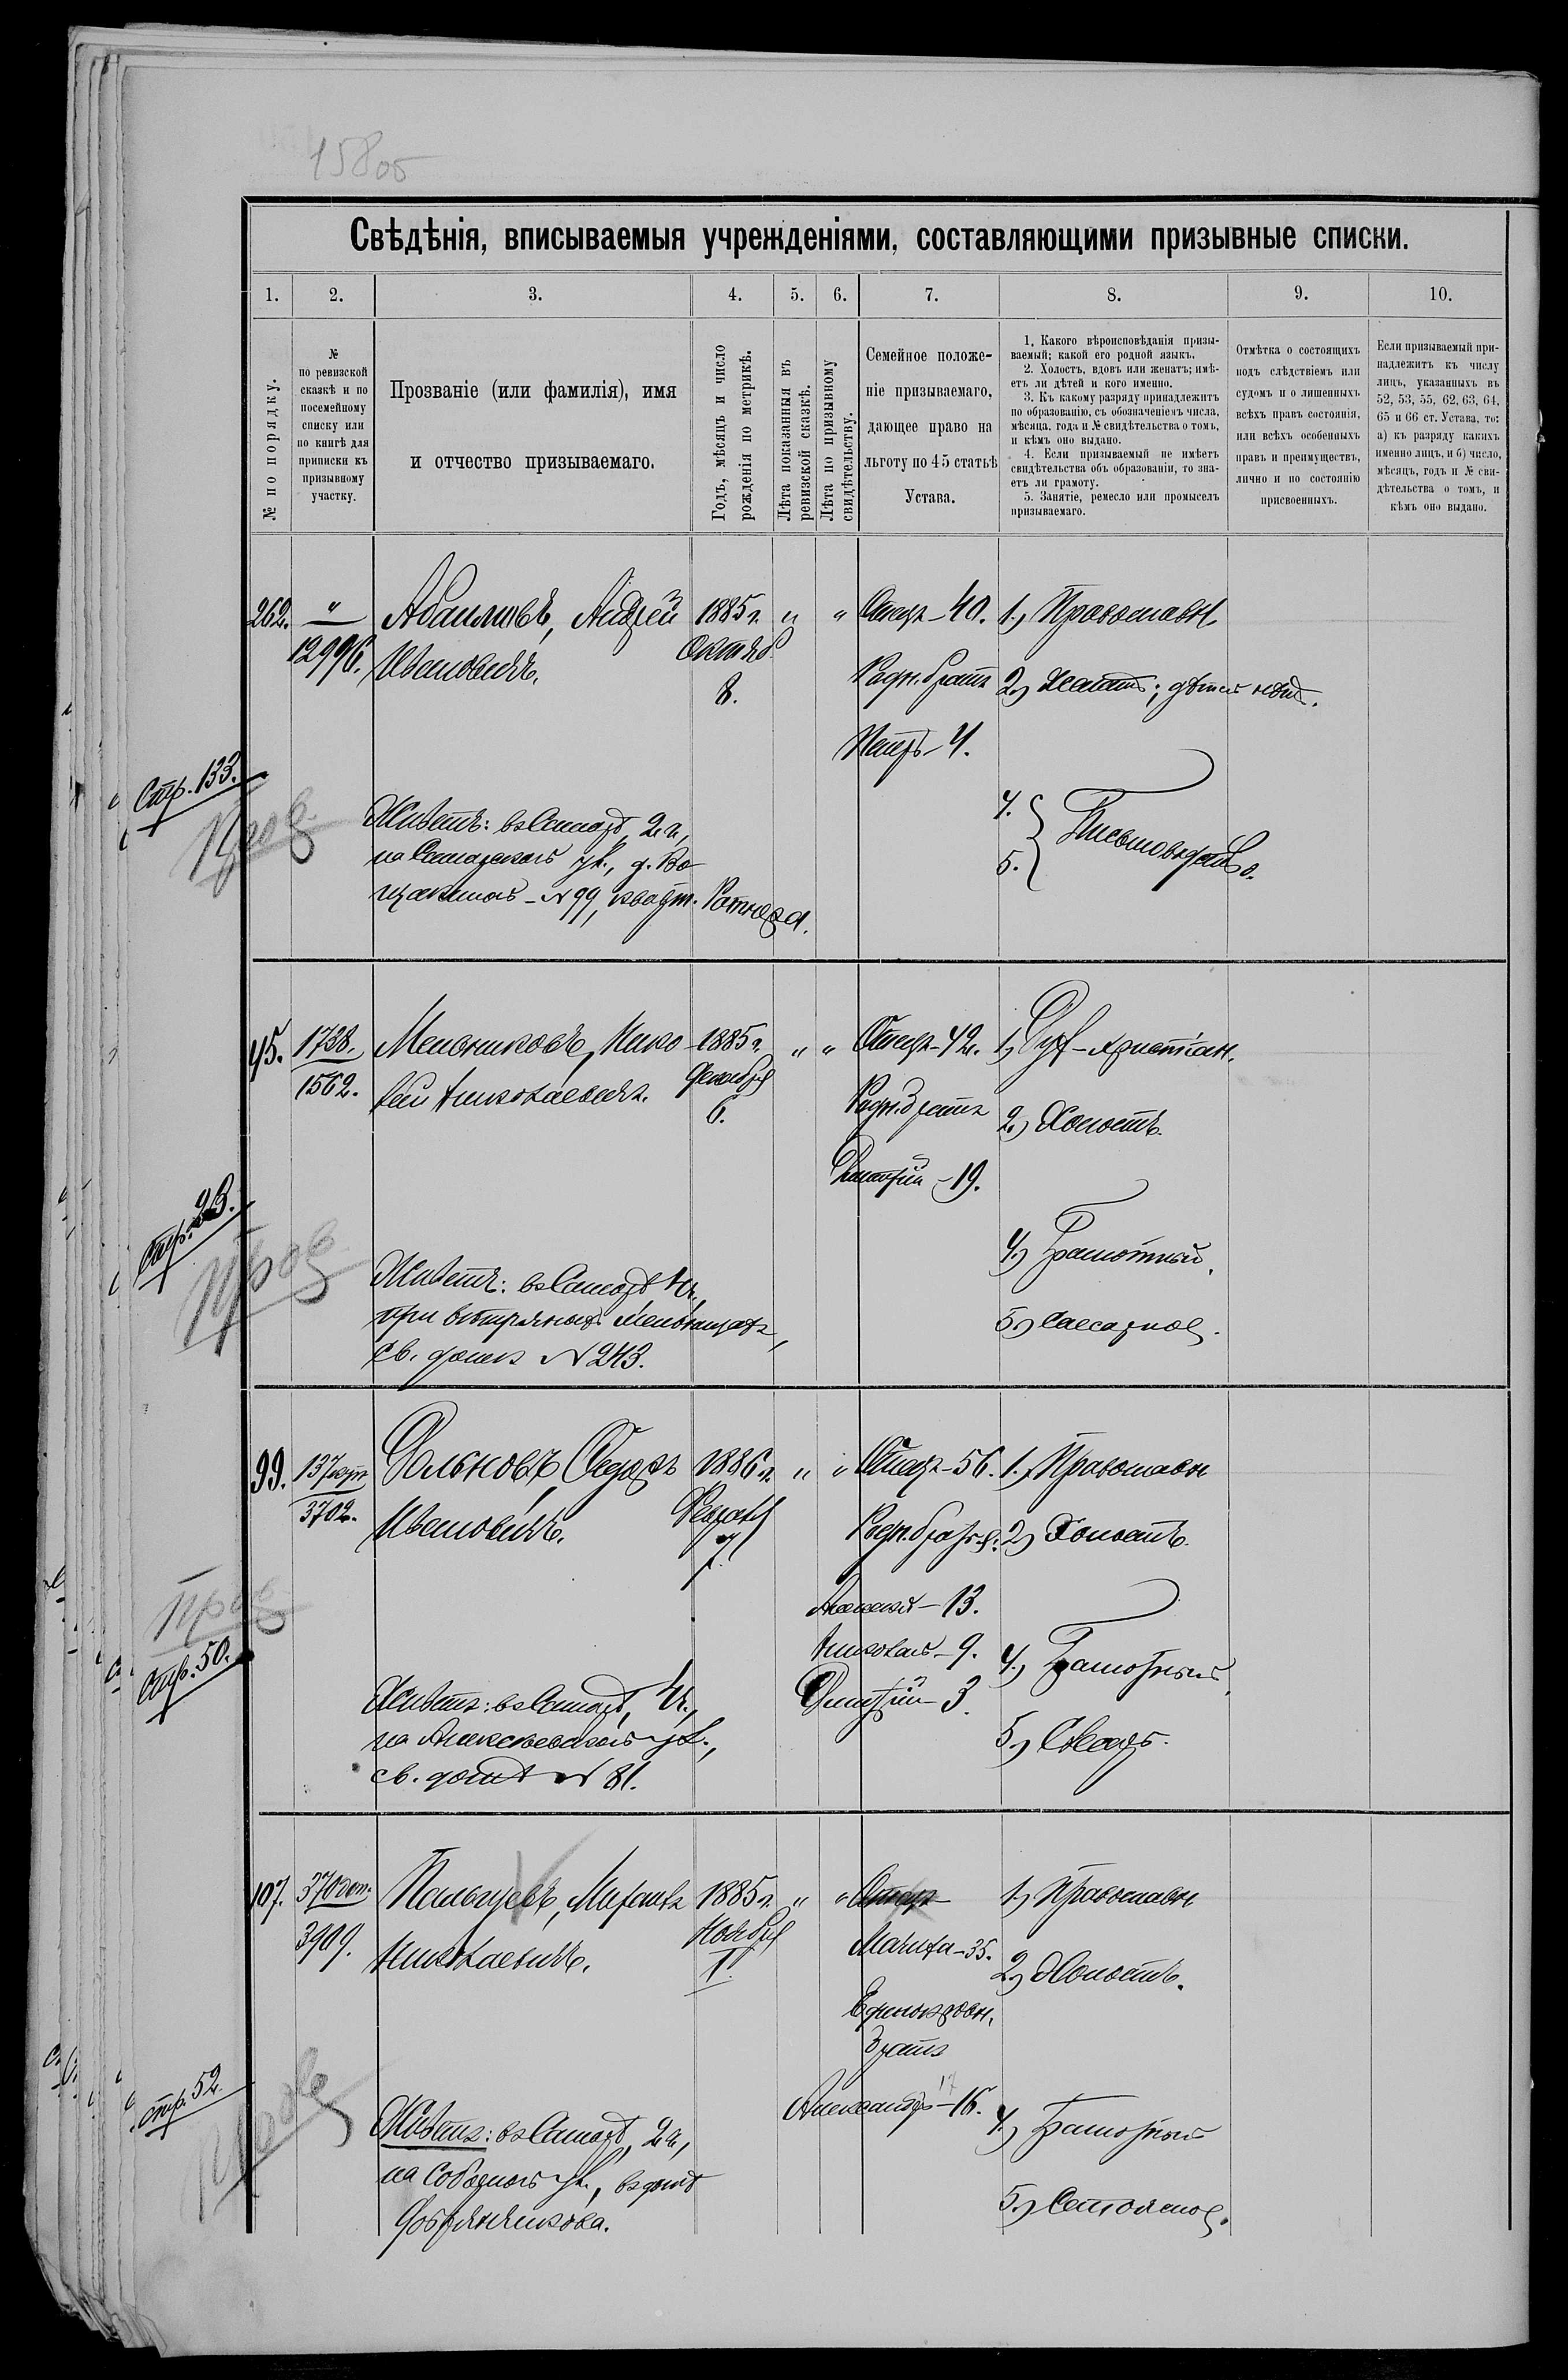 158об
Свѣдѣнія, вписываемыя учрежденіями, составляющими призывные списки.
1. 2. 3. 4. 5. 6. 7. 8. 9. 10.
№ по порядку.
№
по ревизской
сказкѣ и по
посемейному
списку или
по книгѣ для
приписки къ
призывному
участку.
Прозваніе (или фамилія), имя
и отчество призываемаго.
Годъ, мѣсяцъ и число
рожденія по метрикѣ.
Лѣта показанныя въ
ревизской сказкѣ.
Лѣта по призывному
свидѣтельству.
Семейное положе-
ніе призываемаго,
дающее право на
льготу по 45 статьѣ
Устава.
1. Какого вѣроисповѣданія призы-
ваемый; какой его родной языкъ.
2. Холостъ, вдовъ или женатъ; имѣ-
етъ ли дѣтей и кого именно.
3. Къ какому разряду принадлежитъ
по образованію, съ обозначеніемъ числа,
мѣсяца, года и № свидѣтельства о томъ,
и кѣмъ оно выдано.
4. Если призываемый не имѣетъ
свидѣтельства объ образованіи, то зна-
етъ ли грамоту.
5. Занятіе, ремесло или промыселъ
призываемаго.
Отмѣтка о состоящихъ
подъ слѣдствіемъ или
судомъ и о лишенныхъ
всѣхъ правъ состоянія,
или всѣхъ особенныхъ
правъ и преимуществъ,
лично и по состоянію
присвоенныхъ.
Если призываемый при-
надлежитъ къ числу
лицъ, указанныхъ въ
52, 53, 55, 62, 63, 64,
65 и 66 ст. Устава, то:
а) къ разряду какихъ
именно лицъ, и б) число,
мѣсяцъ, годъ и № сви-
дѣтельства о томъ, и
кѣмъ оно выдано.
262. " Андрей 1885 г. " " Отецъ - 40. 1.) Православн.
12996. Ивановичъ. Октяб.
8.
Родн. братъ 2.) Женатъ; дѣтей нѣтъ.
Петръ - 4.
Стр. 133.
Пров
Живетъ: въ Самарѣ, 2 ч.,
на Самарской ул., д. Во
№ 99, кварт.
4. }
5. } Письмоводство.
45. 1738. Мельниковъ, Нико- 1885 г. " " Отецъ - 42. 1.)
1562. лай Николаевичъ. Декабря
6.
Родн. братъ 2.) Холостъ.
Дмитрій - 19.
Стр. 23.
Пров
4.) Грамотный.
Живетъ: въ Самарѣ 4 ч.,
при вѣтряныхъ мельницахъ,
св. домъ № 243.
5.) Слесарное.
99. 137 куп. Ѳедоръ 1886 г. " " Отецъ - 56. 1.) Православн
3702. Ивановичъ. Февраля
7.
Родн. братья: 2.) Холостъ.
Алексѣй - 13.
Николай - 9. 4.) Грамотный.
Дмитрій - 3.
Пров
Стр. 50.
Живетъ: въ Самарѣ, 4 ч.,
на Алексѣевской ул.,
св. домъ № 81.
5.) Слесарь.
107. 370 доп. Пальцевъ, Михаилъ 1885 г. " " Отецъ 1.) Православн
3909. Николаевичъ. Ноября
1.
Мачиха - 35. 2.) Холостъ.
Единокровн.
братъ
17
Александръ - 16. 4.) Грамотный
стр. 52
Пров
Живетъ: въ Самарѣ, 2 ч.,
на Соборной ул., въ домѣ
5.) Столярное.